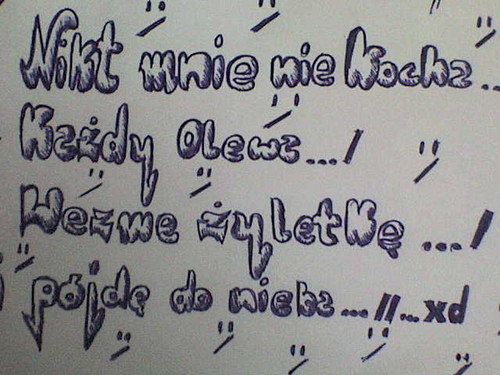 Nikt mnie nie kocha...
Każdy olewa.../
Wezme żyletkę .../
pójdę do nieba...//...xd